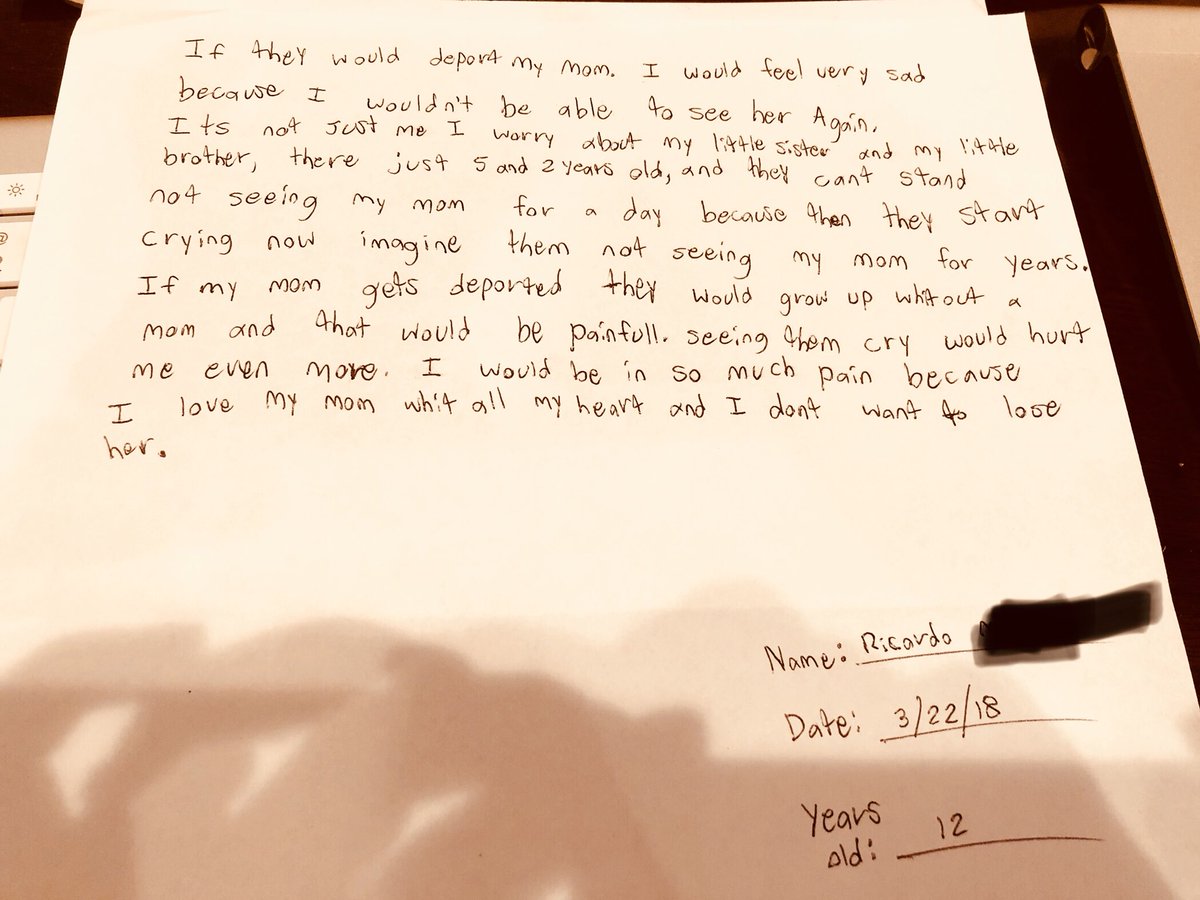 If they would deport my mom. I would feel very sad
because I wouldn't be able to see her Again.
Its not just me I worry about my little sister and my little
brother, there just 5 and 2 years old, and they cant stand
not seeing my mom for a day because then they start
crying now imagine them not seeing my mom for years.
If my mom gets deported they would grow up whitout a
mom and that would be painfull. seeing them cry would hurt
me even more. I would be in so much pain because
I love my mom whit all my heart and I dont want to lose
her.
Name: Ricardo
Date: 3/22/18
Years
old: 12